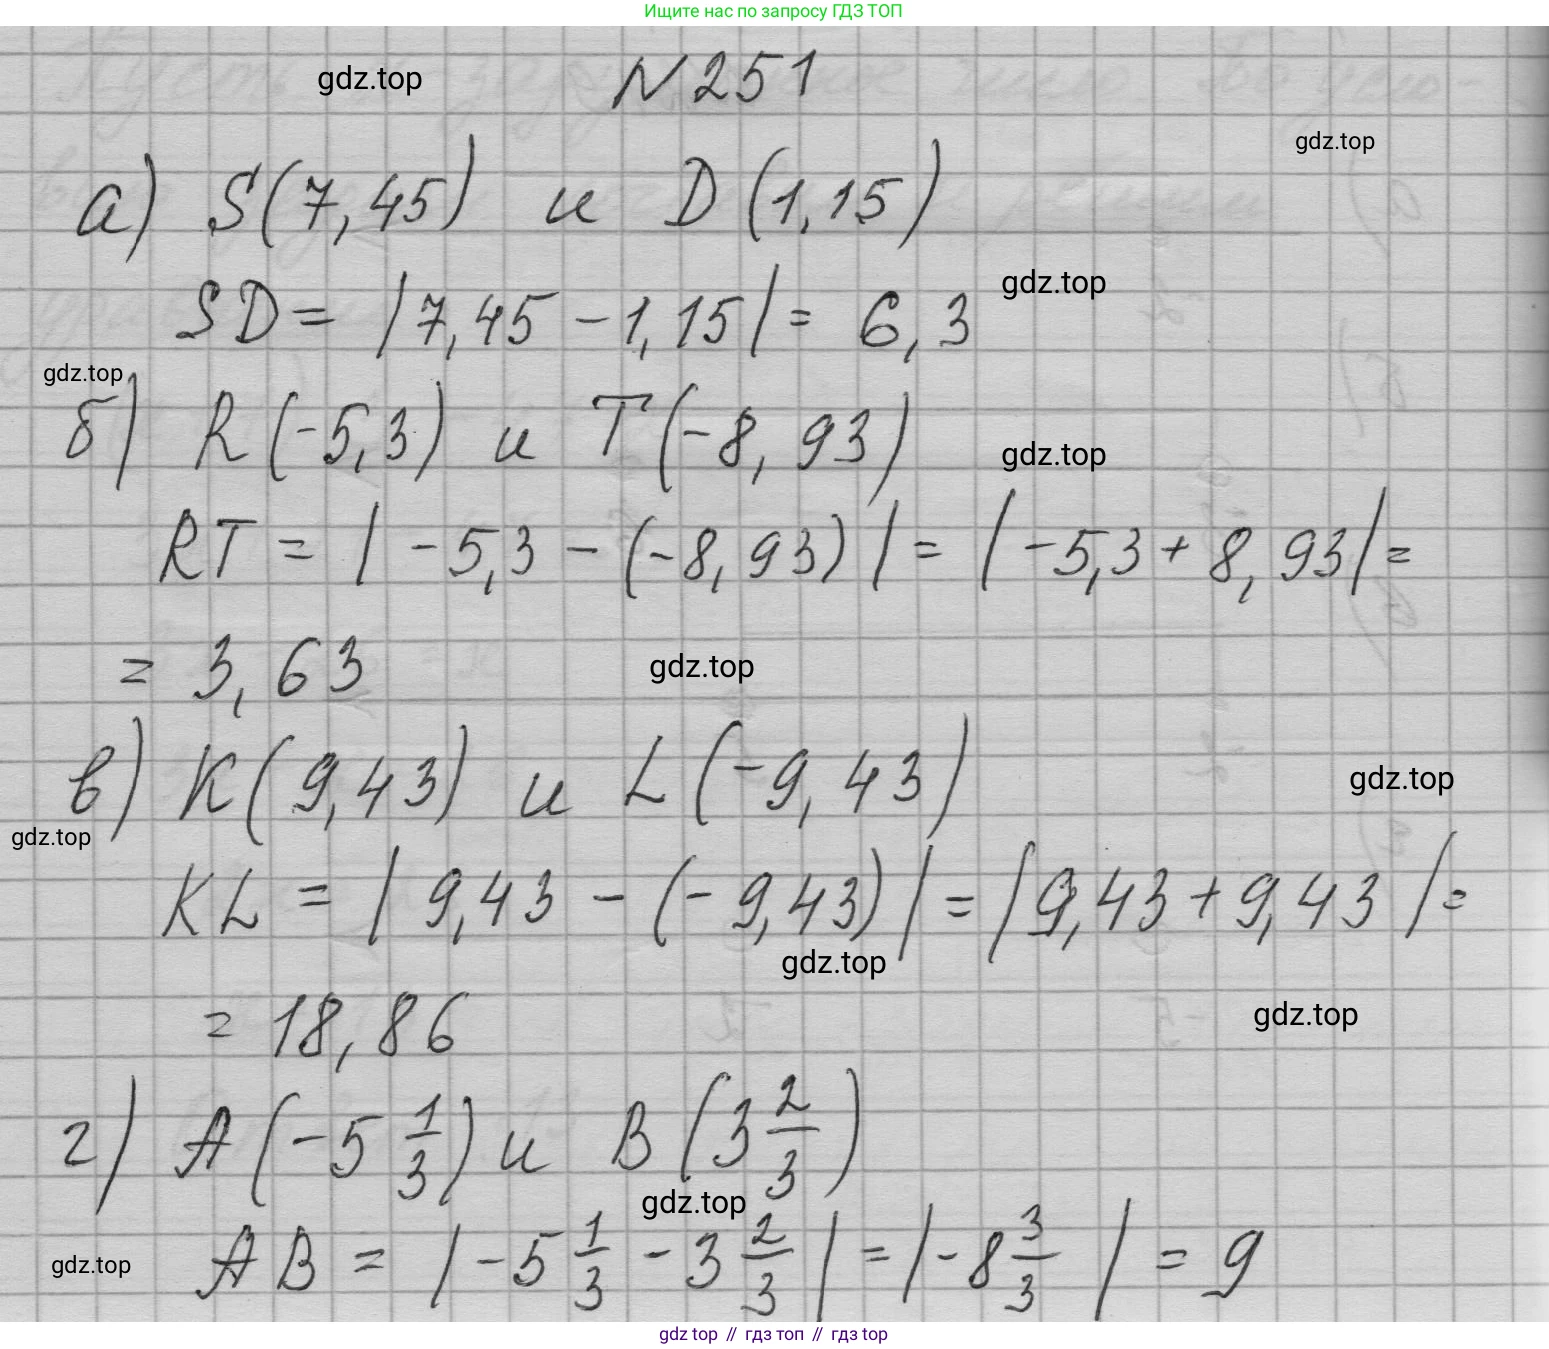 Ищите нас по запросу ГДЗ ТОП
gdz.top
N 251
gdz.top
а) S(7,45) и D(1,15)
SD = |7,45 - 1,15| = 6,3
gdz.top
gdz.top
б) R(-5,3) и T(-8,93)
gdz.top
RT = |-5,3 - (-8,93)| = |-5,3 + 8,93| =
= 3,63
gdz.top
в) K(9,43) и L(-9,43)
gdz.top
gdz.top
KL = |9,43 - (-9,43)| = |9,43 + 9,43| =
gdz.top
= 18,86
gdz.top
г) A(-5 1/3) и B(3 2/3)
gdz.top
AB = |-5 1/3 - 3 2/3| = |-8 3/3| = 9
gdz.top
gdz top // гдз топ // gdz top